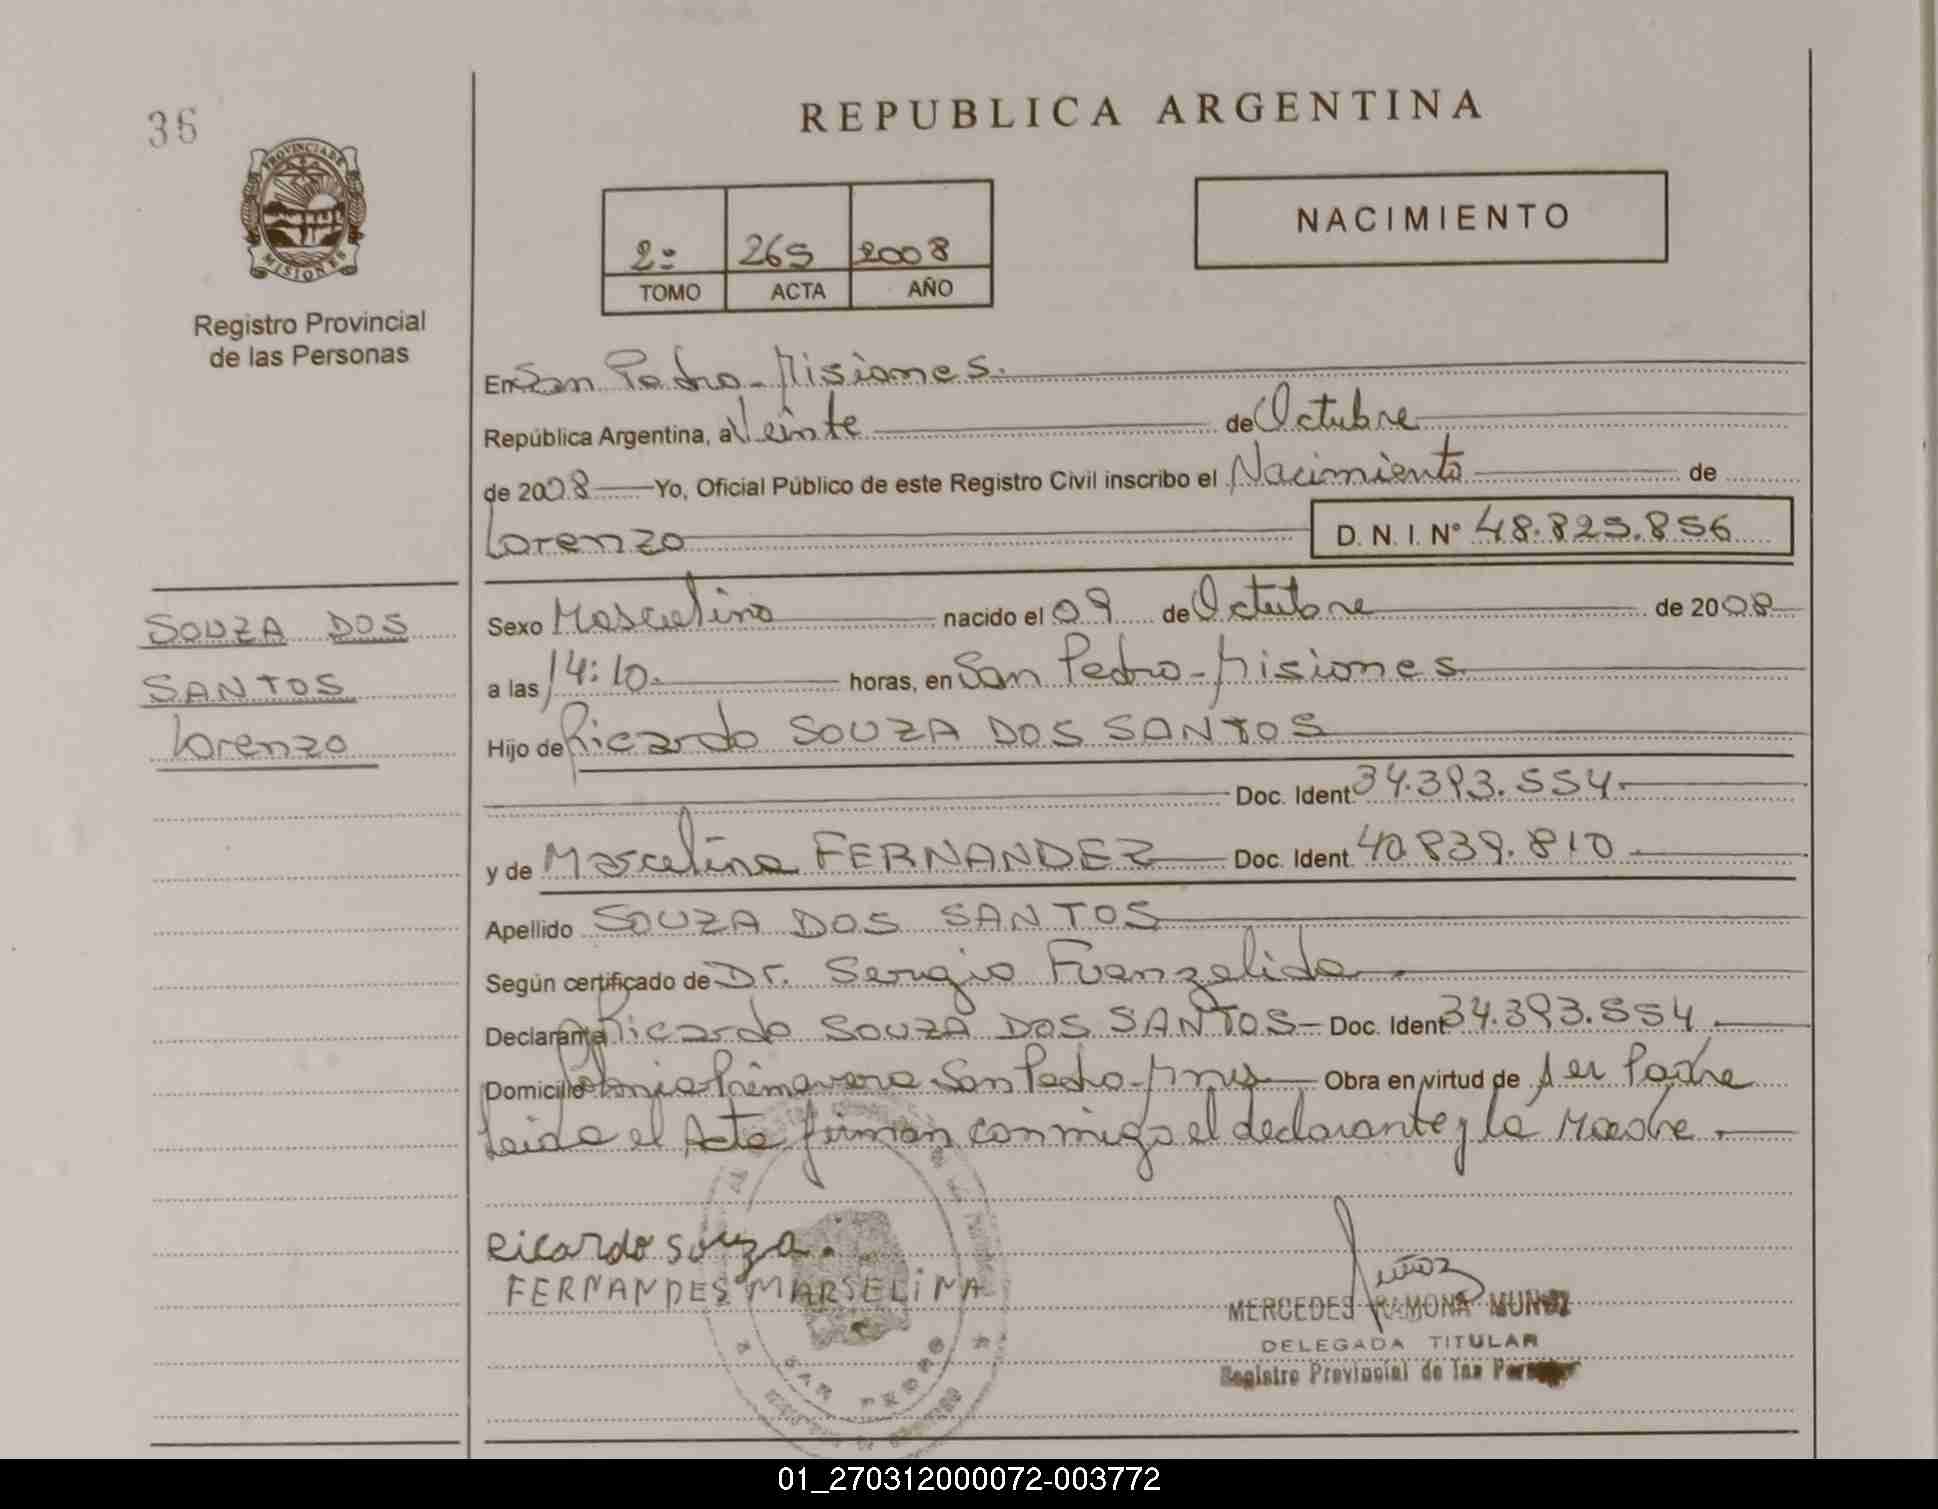 36
REPUBLICA ARGENTINA
PROVINCIA DE
MISIONES
Registro Provincial
de las Personas
2º 265 2008
TOMO ACTA AÑO
NACIMIENTO
En San Pedro - Misiones.
República Argentina, a Veinte de Octubre
de 2008 Yo, Oficial Público de este Registro Civil inscribo el Nacimiento de
Lorenzo D. N. I. Nº 48.825.856
SOUZA DOS
SANTOS
Lorenzo
Sexo Masculino nacido el 09 de Octubre de 2008
a las 14:10. horas, en San Pedro - Misiones
Hijo de Ricardo SOUZA DOS SANTOS
Doc. Ident. 34.393.554.
y de Marcelina FERNANDEZ Doc. Ident. 40.839.810
Apellido SOUZA DOS SANTOS
Según certificado de Dr. Sergio Fuenzalida
Declarante Ricardo SOUZA DOS SANTOS - Doc. Ident. 34.393.554
Domicilio Colonia Primavera San Pedro - Mnes Obra en virtud de ser Padre
Leida el Acta firman conmigo el declarante y la Madre.
Ricardo Souza.
FERNANDES MARSELINA
Muñoz
MERCEDES RAMONA MUÑOZ
DELEGADA TITULAR
Registro Provincial de las
SAN PEDRO
01_270312000072-003772